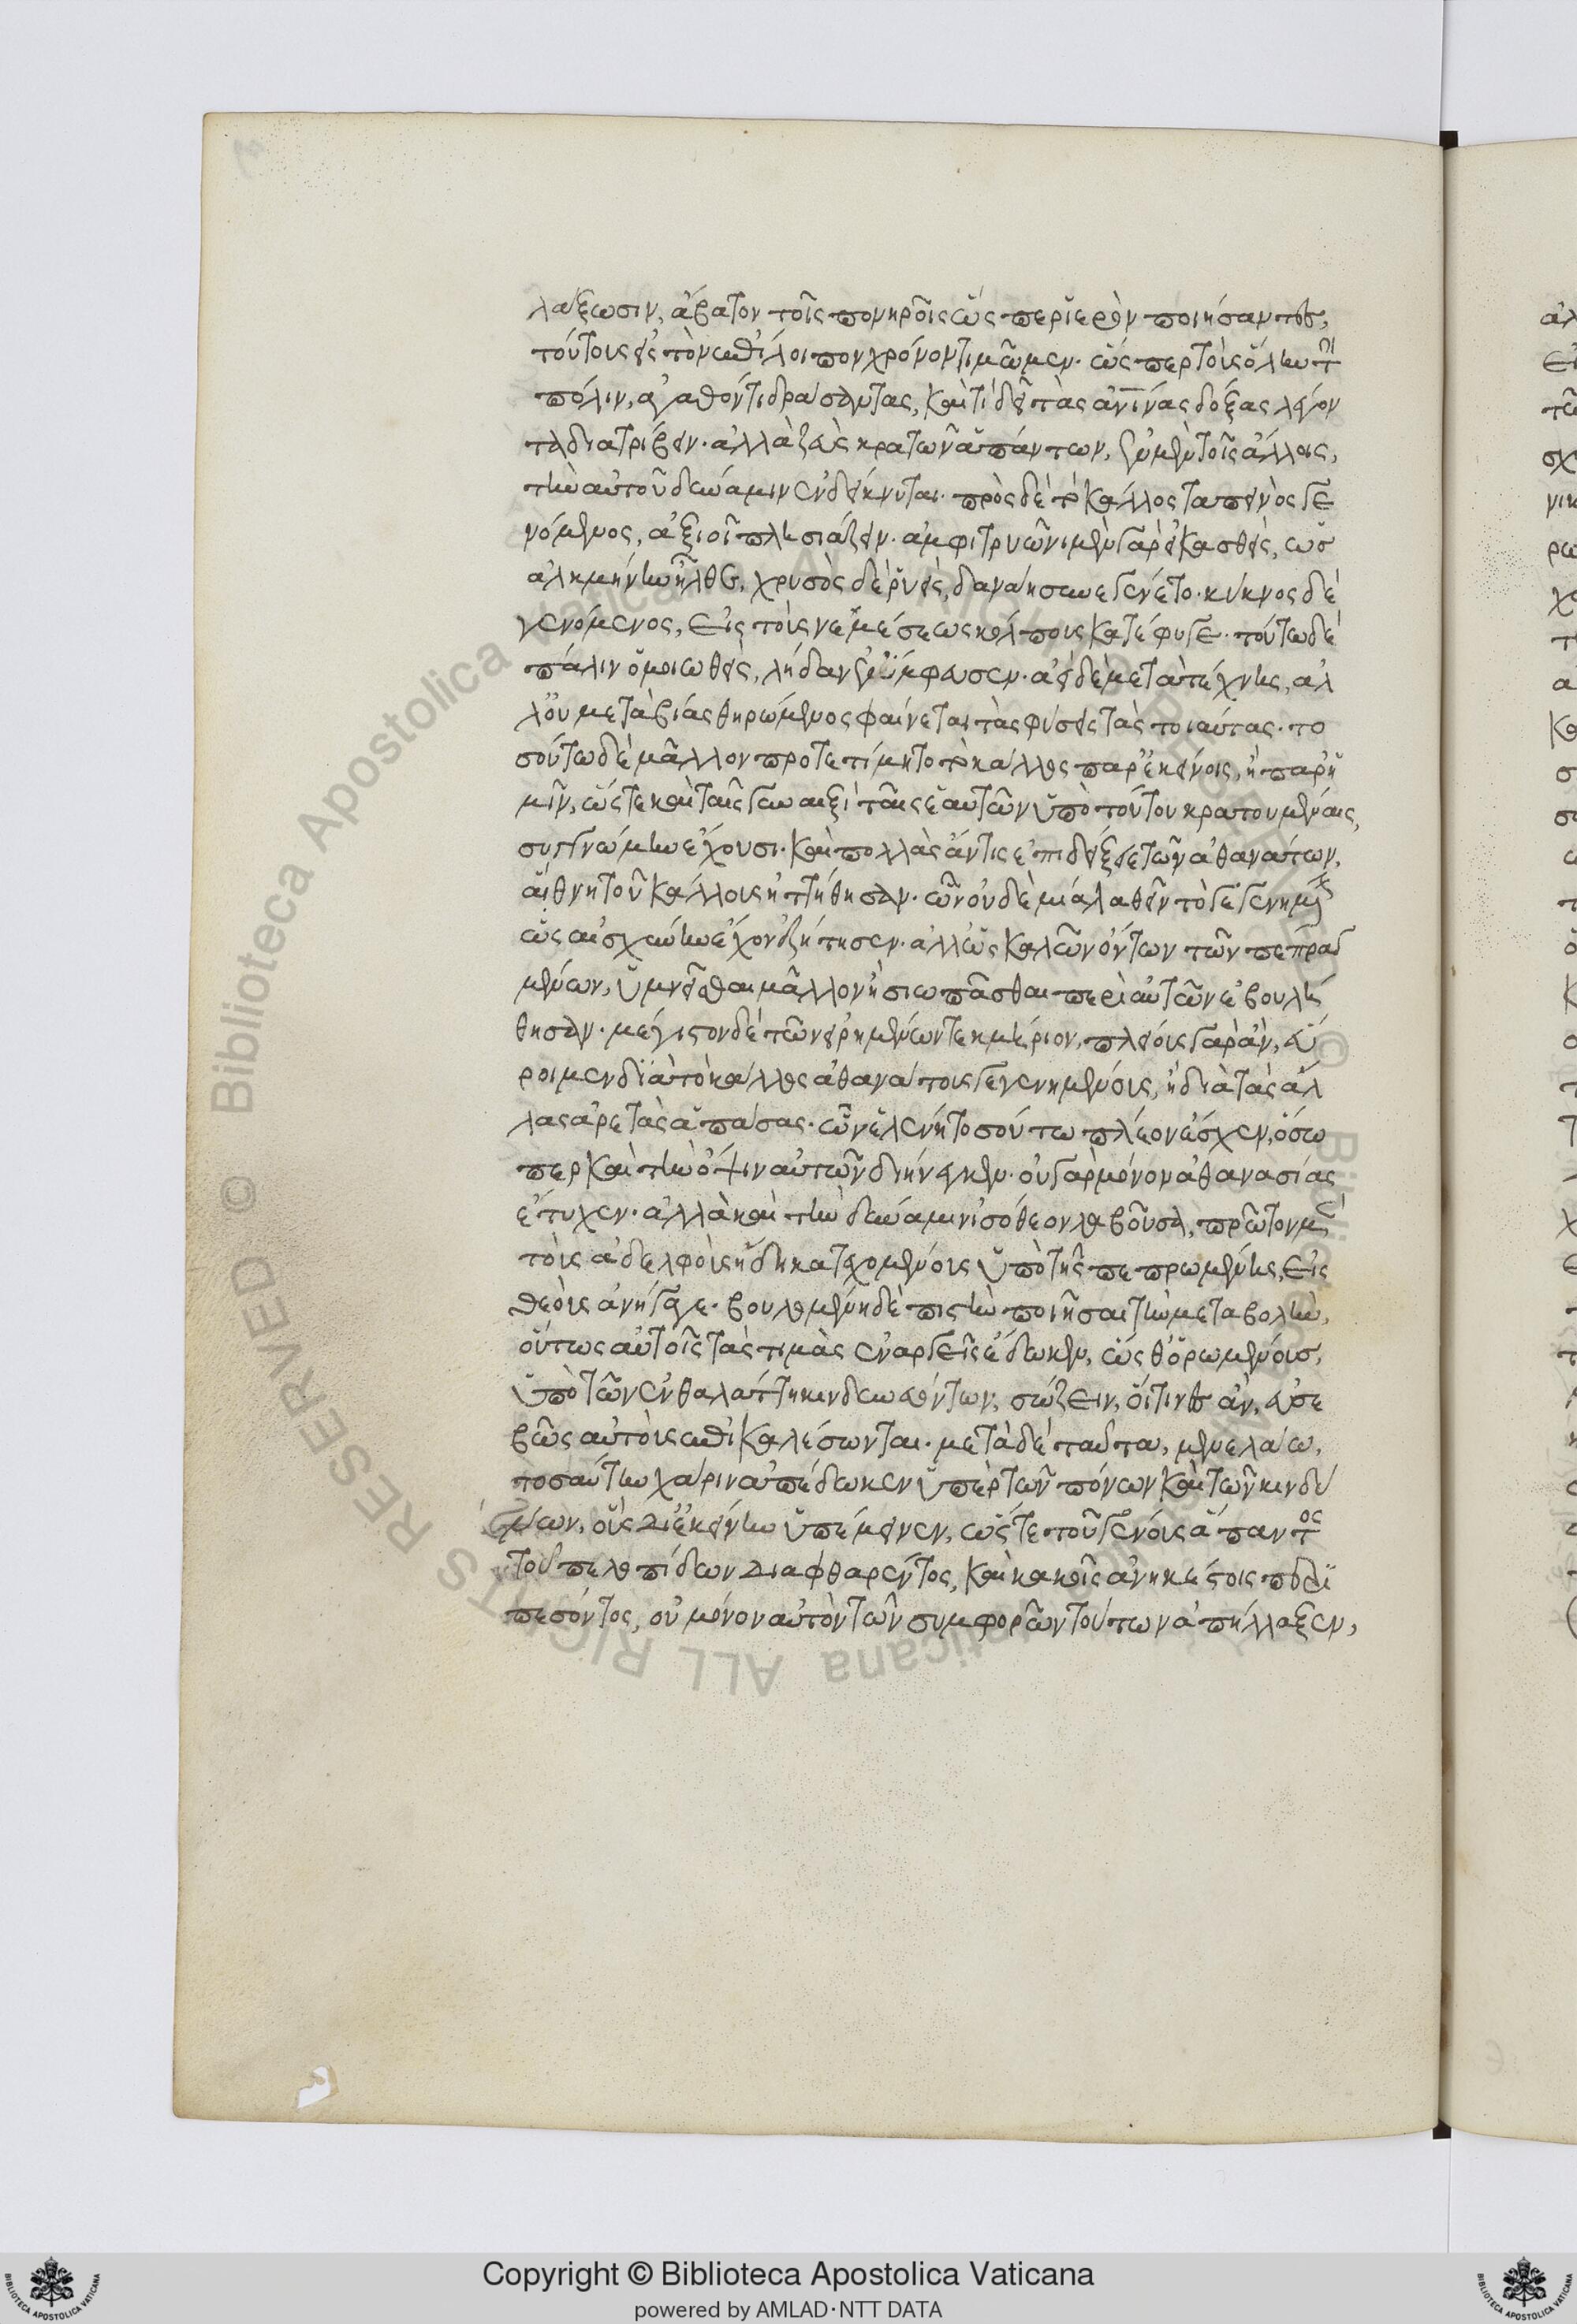 λάξωσιν, ἄβατον τοῖς πονηροῖς ὥσπερ ἱερὸν ποιήσαντες,
τούτους εἰς τὸν ἐπίλοιπον χρόνον τιμῶμεν· ὥσπερ τοὺς ὅλην τὴν
πόλιν, ἀγαθόν τι δράσαντας, καὶ τί δεῖ τὰς ἀν΄ίνας δόξας λέγον
τα διατρίβειν· ἀλλὰ ζεὺς κρατῶν ἁπάντων, ἐν μὲν τοῖς ἄλλοις,
τὴν αὑτοῦ δύναμιν ἐνδείκνυται· πρὸς δὲ τὸ κάλλος ταπεινὸς γε
νόμενος, ἀξιοῖ πλησιάζειν· ἀμφιτρυῶνι μὲν γὰρ εἰκασθεὶς, ὡς
ἀλκμήνην ἦλθε, χρυσὸς δὲ ῥυεὶς, δανάῃ συνεγένετο· κύκνος δὲ
γενόμενος, εἰς τοὺς νεμέσεως κόλπους κατέφυγε· τούτῳ δὲ
πάλιν ὁμοιωθεὶς, λήδαν ἐνύμφευσεν· ἀεὶ δὲ μετὰ τέχνης, ἀλ
λ᾽ οὐ μετὰ βίας θηρώμενος φαίνεται τὰς φύσεις τὰς τοιαύτας· το
σούτῳ δὲ μᾶλλον προτετίμητο τὸ κάλλος παρ᾽ ἐκείνοις, ἢ παρ᾽ ἡ
μῖν, ὥστε καὶ ταῖς γυναιξὶ ταῖς ἑαυτῶν ὑπὸ τούτου κρατουμέναις,
συγγνώμην ἔχουσι· καὶ πολλὰς ἄν τις ἐπιδείξειε τῶν ἀθανάτων,
αἳ θνητοῦ κάλλους ἡττήθησαν· ὧν οὐδὲ μία λαθεῖν τὸ γεγενημένον
ὡς αἰσχύνην ἔχον ἐζήτησεν· ἀλλ᾽ ὡς καλῶν ὄντων τῶν πεπραγ
μένων, ὑμνεῖσθαι μᾶλλον ἢ σιωπᾶσθαι περὶ αὐτῶν ἐβουλή
θησαν· μέγιστον δὲ τῶν εἰρημένων τεκμήριον, πλείους γὰρ ἂν, εὕ
ροιμεν διὰ τὸ κάλλος ἀθανάτους γεγενημένους, ἢ διὰ τὰς ἄλ
λας ἀρετὰς ἁπάσας· ὧν ἑλένη τοσούτῳ πλέον ἔσχεν, ὅσῳ
περ καὶ τὴν ὄψιν αὐτῶν διήνεγκεν· οὐ γὰρ μόνον ἀθανασίας
ἔτυχεν· ἀλλὰ καὶ τὴν δύναμιν ἰσόθεον λαβοῦσα, πρῶτον μὲν
τοὺς ἀδελφοὺς ἤδη κατεχομένους ὑπὸ τῆς πεπρωμένης, εἰς
θεοὺς ἀνήγαγε· βουλομένη δὲ πιστὴν ποιῆσαι τὴν μεταβολὴν,
οὕτως αὐτοῖς τὰς τιμὰς ἐναργεῖς ἔδωκεν, ὥσθ᾽ ὁρωμένους,
ὑπὸ τῶν ἐν θαλάττῃ κινδυνευόντων, σώζειν, οἵτινες ἂν, εὐσε
βῶς αὐτοὺς ἐπικαλέσωνται· μετὰ δὲ ταῦτα, μενελάῳ,
τοσαύτην χάριν ἀπέδωκεν ὑπὲρ τῶν πόνων καὶ τῶν κινδύ
νων, οὓς δι᾽ ἐκείνην ὑπέμεινεν, ὥστε τοῦ γένους ἅπαντος
τοῦ πελοπιδῶν διαφθαρέντος, καὶ κακοῖς ἀνηκέστοις περι
πεσόντος, οὐ μόνον αὐτὸν τῶν συμφορῶν τούτων ἀπήλλαξεν,
Copyright © Biblioteca Apostolica Vaticana
powered by AMLAD·NTT DATA